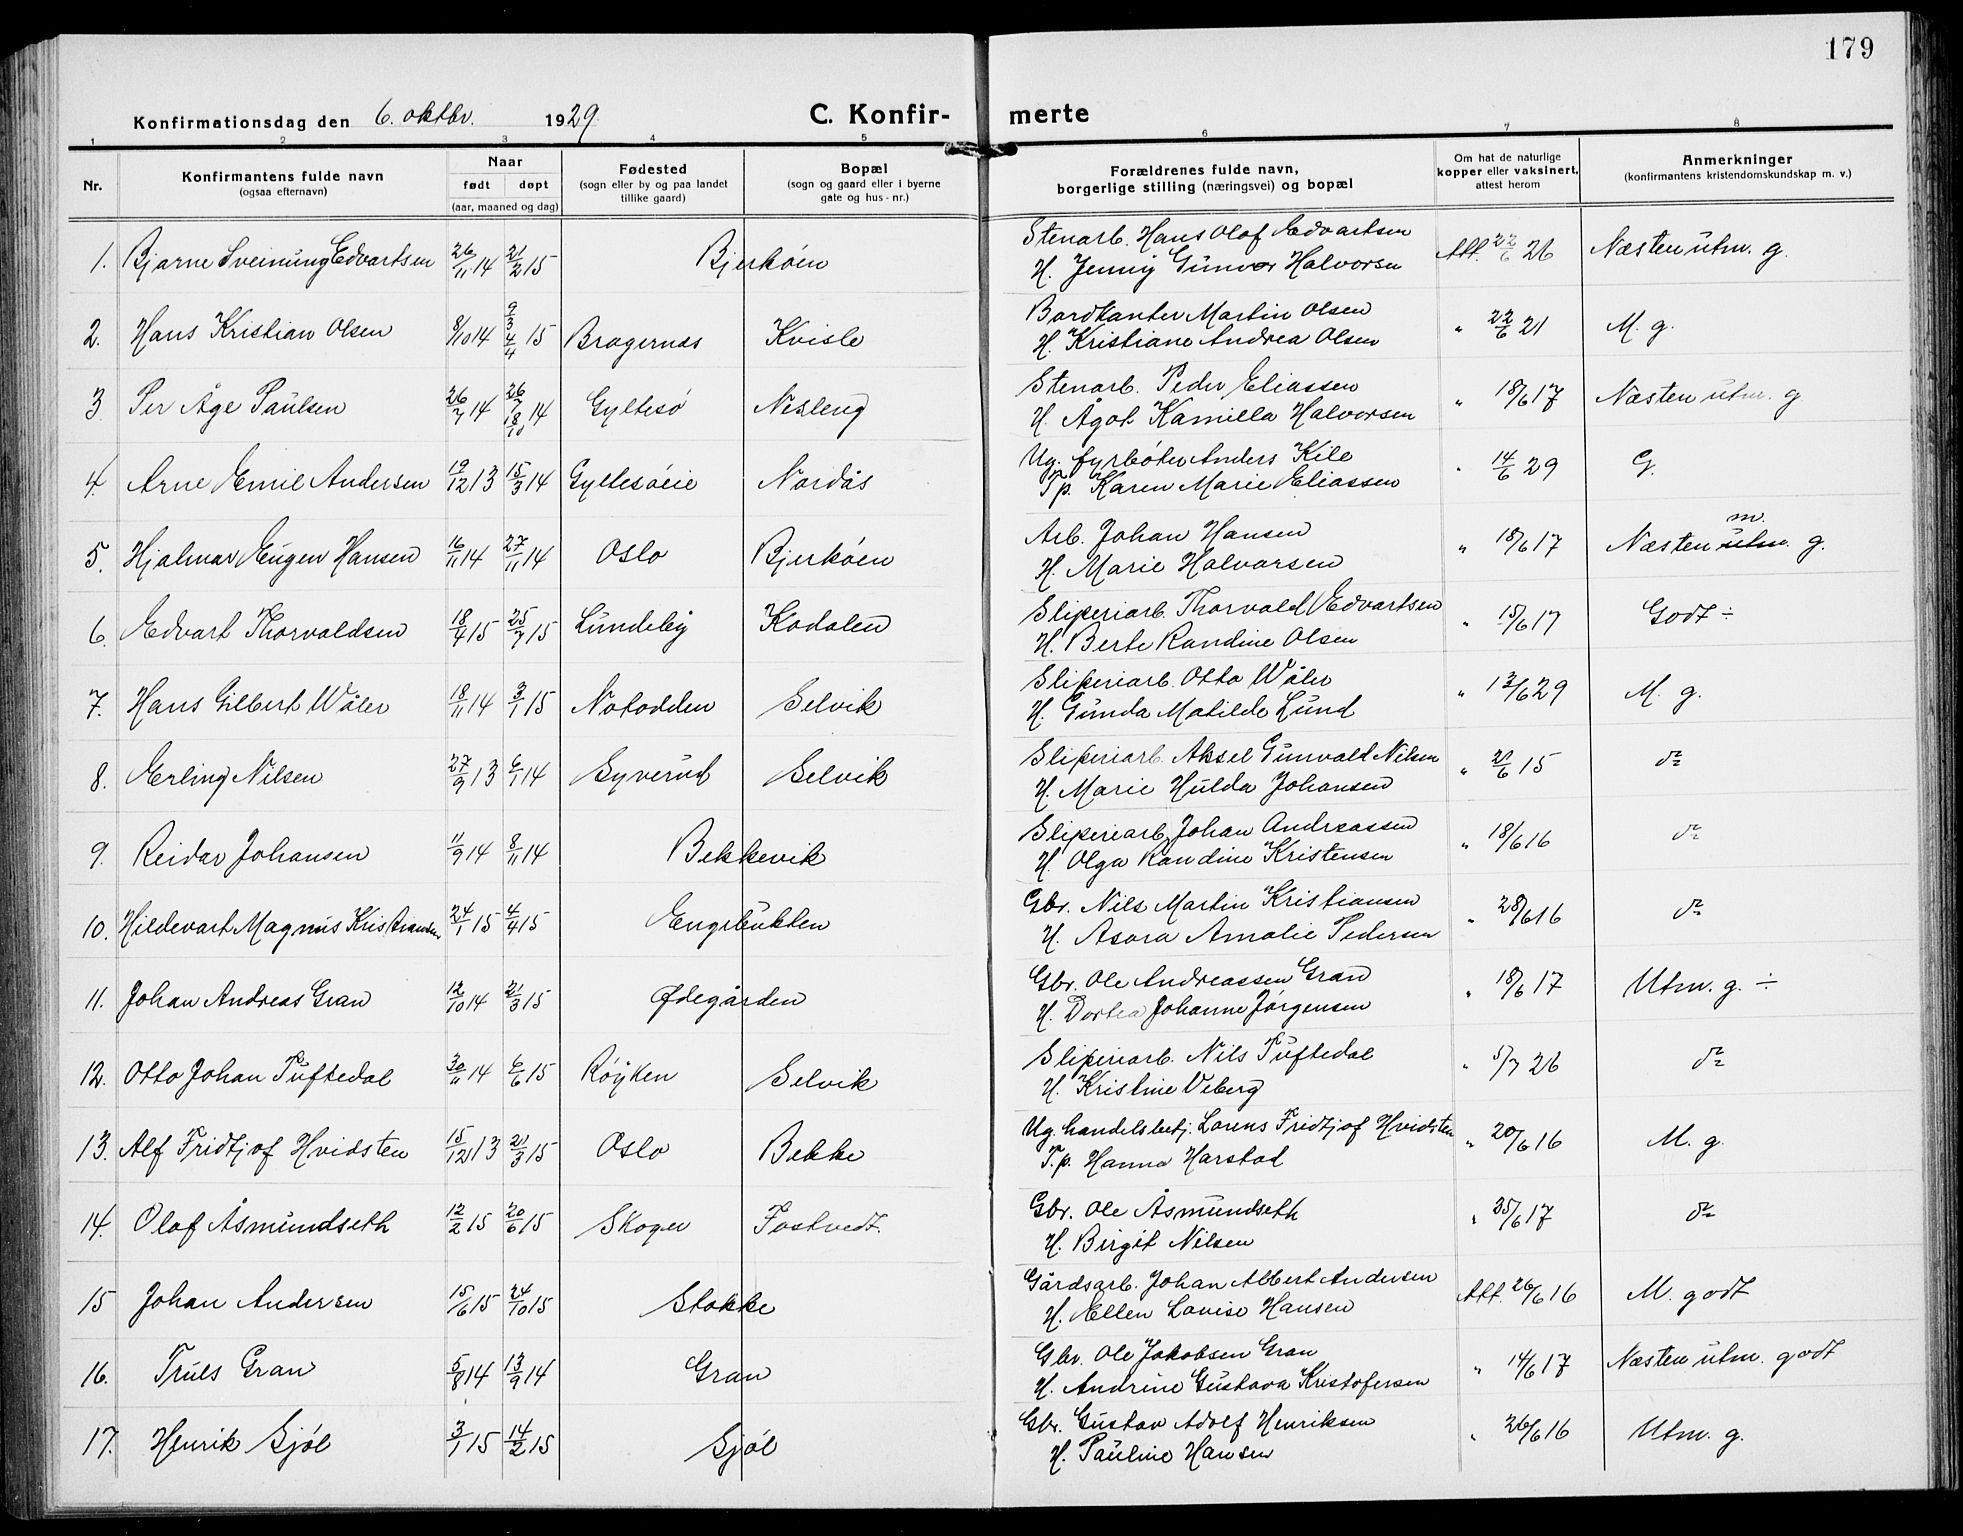 179
Konfirmationsdag den 6. oktbr. 1929. C. Konfir- merte
1 2 3 4 5 6 7 8
Nr. Konfirmantens fulde navn (ogsaa efternavn) Naar født døpt (aar, maaned og dag) Fødested (sogn eller by og paa landet tillike gaard) Bopæl (sogn og gaard eller i byerne gate og hus-nr.) Forældrenes fulde navn, borgerlige stilling (næringsvei) og bopæl Om hat de naturlige kopper eller vaksinert, attest herom Anmerkninger (konfirmantens kristendomskundskap m. v.)
1. Bjarne Sveinung Edvartsen 26/11 14 21/2 15 Bjerköen Stenarb. Hans Olof Edvartsen Att. 22/6 26 Næsten utm. g.
H. Jenny Gunvor Halvorsen
2. Hans Kristian Olsen 8/10 14 9/3 4/4 15 Bragernæs Kvisle Bordkanter Martin Olsen " 22/6 21 M. g.
H. Kristiane Andrea Olsen
3 Per Åge Paulsen 26/7 14 26/7 18/10 14 Gyltesö Nesleng Stenarb. Peder Eliassen " 18/6 17 Næsten utm. g
H. Ågot Kamilla Halvorsen
4. Arne Emil Andersen 19/12 13 15/3 14 Gyltesöeie Nordås Ug. fyrböter Anders Kile " 14/6 29 G.
Tp. Karen Marie Eliassen
5. Hjalmar Eugen Hansen 16/11 14 27/11 14 Oslo Bjerköen Arb. Johan Hansen " 18/6 17 Næsten utm. m. g.
H. Marie Halvorsen
6. Edvart Thorvaldsen 18/4 15 25/7 15 Lundeby Kodalen Sliperiarb. Thorvald Edvartsen " 15/6 17 Godt ÷
H. Berte Randine Olsen
7. Hans Gilbert Wåler 18/11 14 3/1 15 Notodden Selvik Sliperiarb. Otto Wåler " 13/6 29 M. g.
H. Gunda Matilde Lund
8. Erling Nilsen 27/9 13 6/1 14 Syverud Selvik Sliperiarb. Aksel Gunvald Nilsen " 21/6 15 do
H. Marie Hulda Johansen
9. Reidar Johansen 11/9 14 8/11 14 Bekkevik Sliperiarb. Johan Andreassen " 18/6 16 do
H. Olga Randine Kristensen
10. Hildevart Magnus Kristiansen 24/1 15 4/4 15 Engsbukten Gbr. Nils Martin Kristiansen " 28/6 16 do
H. Asora Amalie Pedersen
11. Johan Andreas Gran 12/10 14 21/3 15 Ødegården Gbr. Ole Andreassen Gran " 18/6 17 Utm. g. ÷
H. Dortea Johanne Jørgensen
12. Otto Johan Tuftedal 30/11 14 6/6 15 Röyken Selvik Sliperiarb. Nils Tuftedal " 5/7 26 do
H. Kristine Viberg
13. Alf Fridtjof Hvidsten 15/12 13 21/3 15 Oslo Bekke Ug. handelsbetj. Lorens Fridtjof Hvidsten " 20/6 16 M. g.
T.p. Hanna Harstad
14. Olaf Åsmundseth 12/2 15 20/6 15 Skoger Tostvedt. Gbr. Ole Åsmundseth " 25/6 17 do
H. Birgit Nilsen
15 Johan Andersen 15/6 15 24/10 15 Stokke Gårdsarb. Johan Albert Andersen Att. 26/6 16 M. godt
H. Ellen Lovise Hansen
16. Truls Gran 5/8 14 13/9 14 Gran Gbr. Ole Jakobsen Gran " 14/6 17 Næsten utm. godt
H. Andrine Gustava Kristofersen
17. Henrik Sjøl 3/1 15 14/2 15 Sjøl Gbr. Gustav Adolf Henriksen " 26/6 16 Utm. g.
H. Pauline Hansen